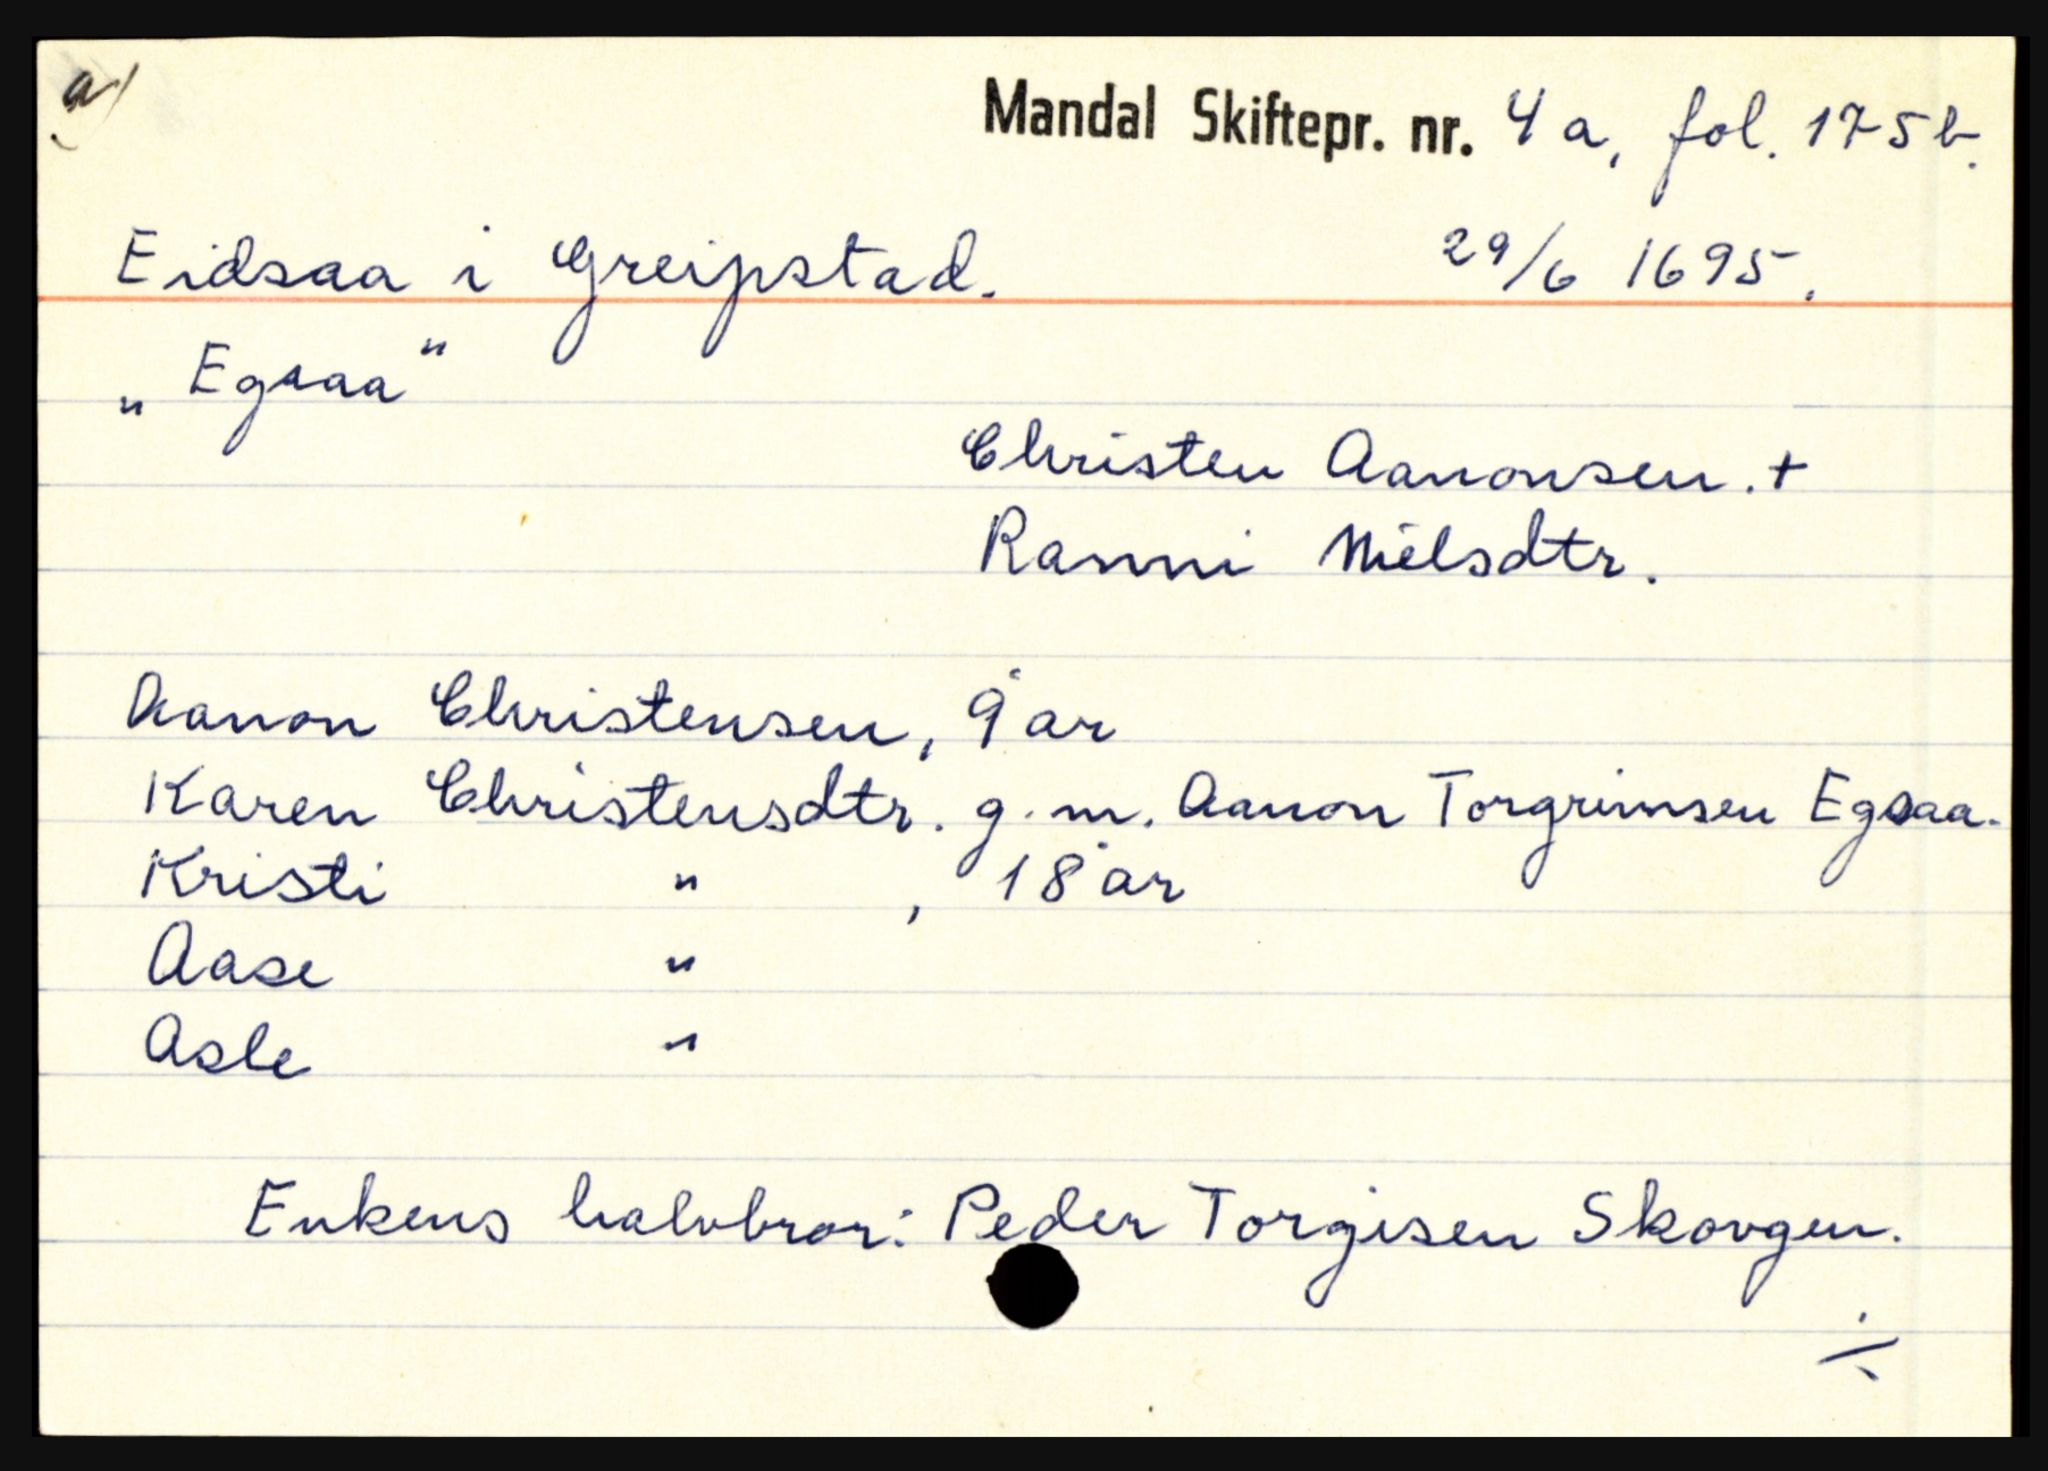 a)
Mandal Skiftepr. nr. 4a, fol. 175b.
Eidsaa i Greipstad. 29/6 1695.
„Egsaa"
Christen Aanonsen. +
Ranni Nielsdtr.
Aanon Christensen, 9 år
Karen Christensdtr. g. m. Aanon Torgrimsen Egsaa.
Kristi " , 18 år
Aase "
Asle "
Enkens halvbror: Peder Torgisen Skovgen.
÷